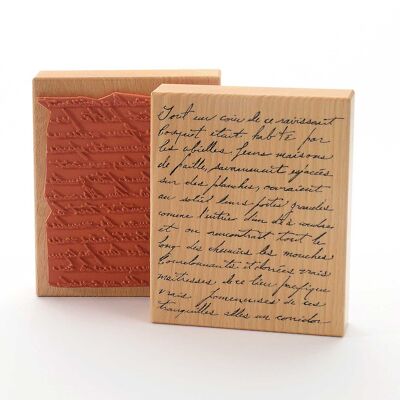 Tout un coin de ce ravissant
bosquet était habité par
les abeilles, leurs maisons
de paille, savamment espacées
sur des planches, ouvraient
au soleil leurs portes grandes
comme l'entrée d'un dé à coudre
et on rencontrait tout le
long des chemins les mouches
bourdonnantes et dorées vrais
maîtresses de ce lieu pacifique
vrais promeneuses de ces
tranquilles allées en corridor